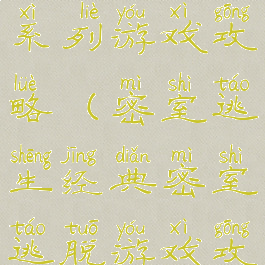 xì liè yóu xì gōng
系列游戏攻
lüè mì shì táo
略（密室逃
shēng jīng diǎn mì shì
生经典密室
táo tuō yóu xì gōng
逃脱游戏攻